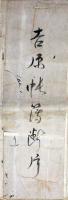 吉原帳簿断片